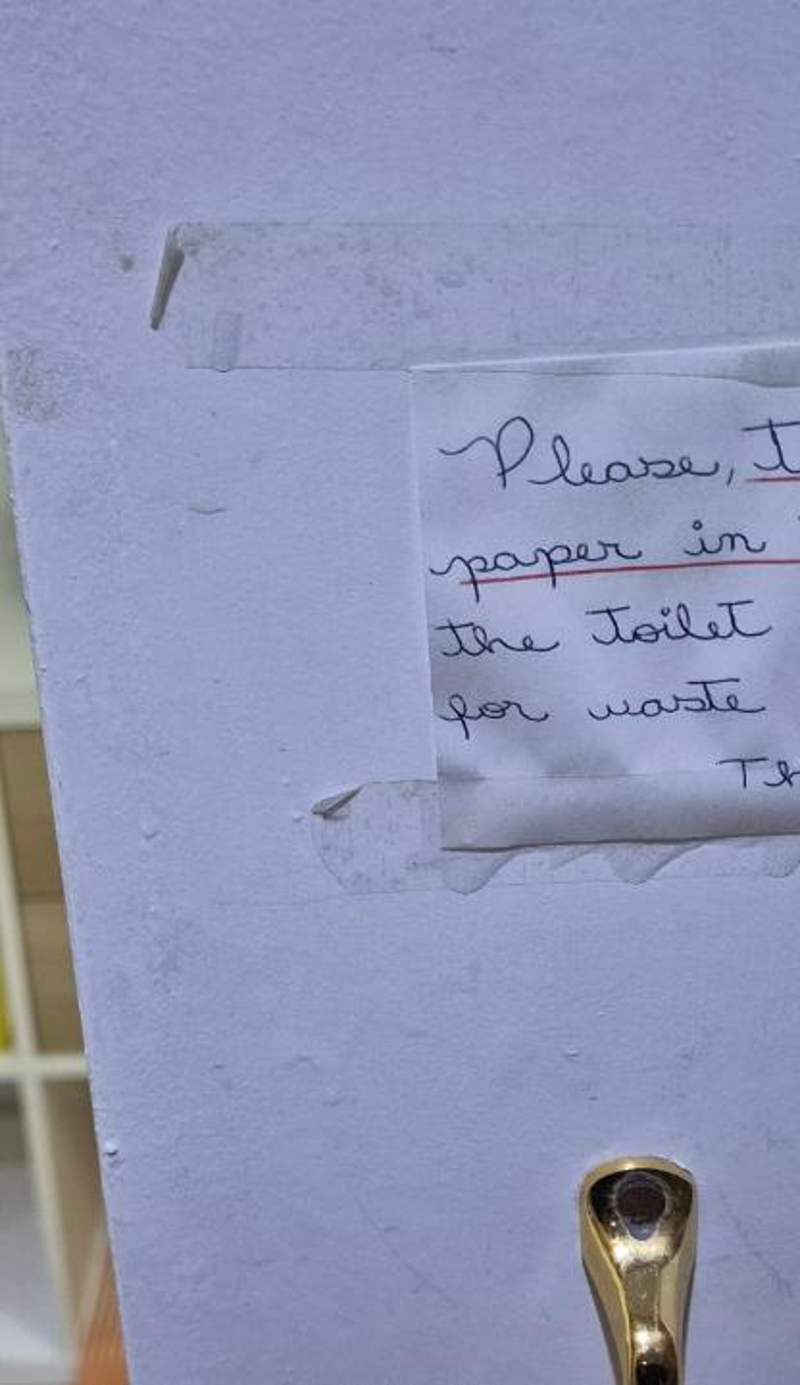 Please,
paper in
the toilet
for waste